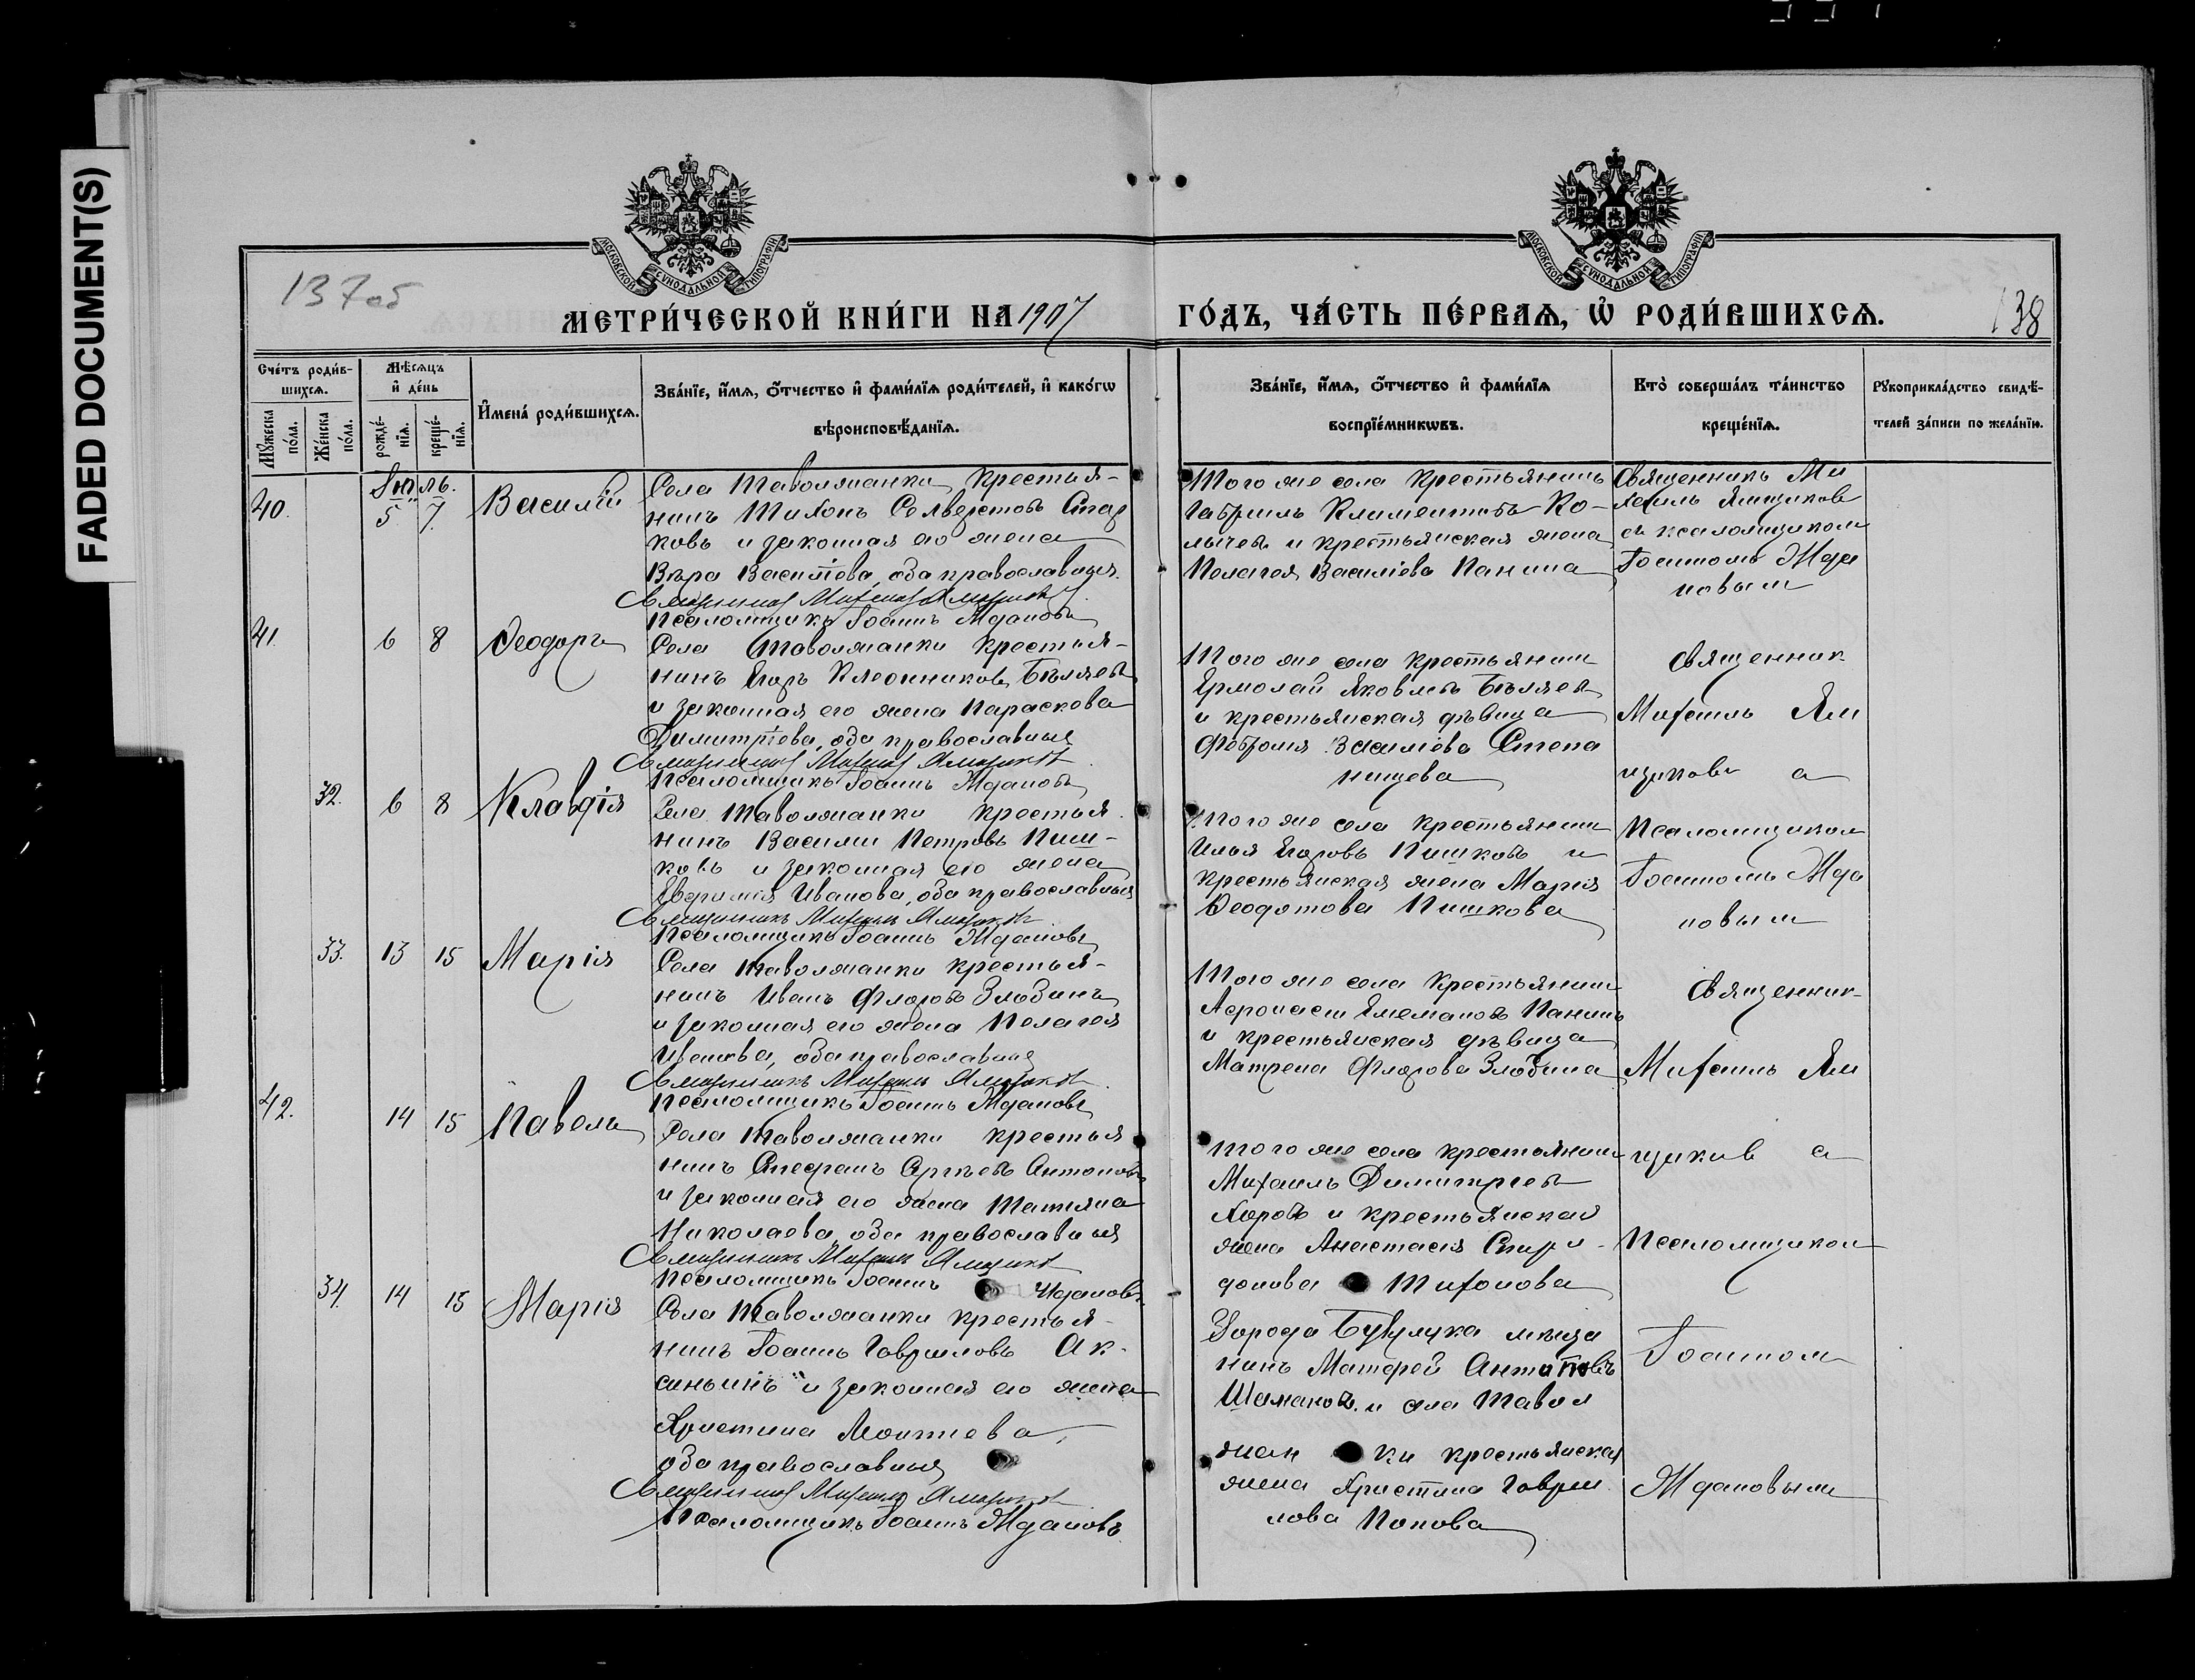 FADED DOCUMENT(S)
137об
МЕТРИ́ЧЕСКОЙ КНИ́ГИ НА 1907
ГО́ДЪ, ЧА́СТЬ ПЕ́РВАѦ, Ѡ҆ РОДИ́ВШИХСѦ.
138
МОСКОВСКОЙ СѴНОДАЛЬНОЙ ТИПОГРАФІИ
МОСКОВСКОЙ СѴНОДАЛЬНОЙ ТИПОГРАФІИ
Сче́тъ роди́в-
шихсѧ.
Мѹжеска по́ла.
Же́нска по́ла.
Мѣ́сѧцъ
и҆ де́нь
рожде́-
нїѧ.
креще́-
нїѧ.
И҆мена̀ роди́вшихсѧ.
Зва́нїе, и҆́мѧ, ѻ҆́тчество и҆ фами́лїѧ роди́телей, и҆ како́гѡ
вѣроисповѣ́данїѧ.
Зва́нїе, и҆́мѧ, ѻ҆́тчество и҆ фами́лїѧ
воспрїе́мникѡвъ.
Кто̀ соверша́лъ та́инство
креще́нїѧ.
Рѹкоприкла́дство свидѣ́-
телей за́писи по жела́нїю.
Іюль.
40. 5 7 Василій
Села Таволжанки, крестья-
нинъ Тихонъ Селверстовъ Стар
ковъ и законная его жена
Вѣра Василіева, оба православные.
Священникъ Михаилъ Ямщиковъ
Псаломщикъ Іоаннъ Ждановъ
Того же села крестьянинъ
Гавріилъ Климентовъ Ко-
лычевъ и крестьянская жена
Пелагея Василіева Панина
Священникъ Ми
хаилъ Ямщиковъ
съ псаломщикомъ
Іоанномъ Жда
новымъ
41. 6 8 Ѳеодоръ
Села Таволжанки крестья-
нинъ Егоръ Клеонниковъ Бѣляевъ
и законная его жена Параскова
Димитріева, оба православные
Священникъ Михаилъ Ямщиковъ
Псаломщикъ Іоаннъ Ждановъ
Того же села крестьянинъ
Ермолай Яковлевъ Бѣляевъ
и крестьянская дѣвица
Феврония Василіева Степа
нищева
Священник
Михаилъ Ям
щиковъ с
32. 6 8 Клавдія
Села Таволжанки крестья
нинъ Василий Петровъ Пиш-
ковъ и законная его жена
Евфимія Иванова, оба православные
Священникъ Михаилъ Ямщиковъ
Псаломщикъ Іоаннъ Ждановъ
Того же села крестьянин
Илья Егоровъ Пишковъ и
крестьянская жена Марія
Ѳеодотова Пишкова
Псаломщиком
Іоанномъ Жда
новым
33. 13 15 Марія
Села Таволжанки крестья-
нинъ Иванъ Флоровъ Злобинъ
и законная его жена Пелагея
Иванова, оба православные
Священникъ Михаилъ Ямщиковъ
Псаломщикъ Іоаннъ Ждановъ
Того же села крестьянин
Афонасий Емемановъ Панинъ
и крестьянская дѣвица
Матрена Флорова Злобина
Священник
Михаилъ Ям
42. 14 15 Павелъ
Села Таволжанки крестья
нинъ Стефанъ Сргѣевъ Антоновъ
и законная его жена Татяна
Николаева, оба православныя
Священникъ Михаилъ Ямщиков
Псаломщикъ Іоаннъ Ждановъ
Того же села крестьянин
Михаилъ Димитріевъ
Хоровъ и крестьянская
жена Анастасія Спири-
донова Тихонова
щиков с
Псаломщиком
34. 14 15 Марія
Села Таволжанки крестья-
нинъ Іоаннъ Гавриловъ Ак-
синьинъ и законная его жена
Христина Леонтева,
оба православныя
Священникъ Михаилъ Ямщиковъ
Псаломщикъ Іоаннъ Ждановъ
Города Бузулука мѣща
нинъ Матфей Антиповъ
Шамановъ и села Тавол
жан ки крестьянская
жена Христина Гаври
лова Попова
Іоанном
Ждановым